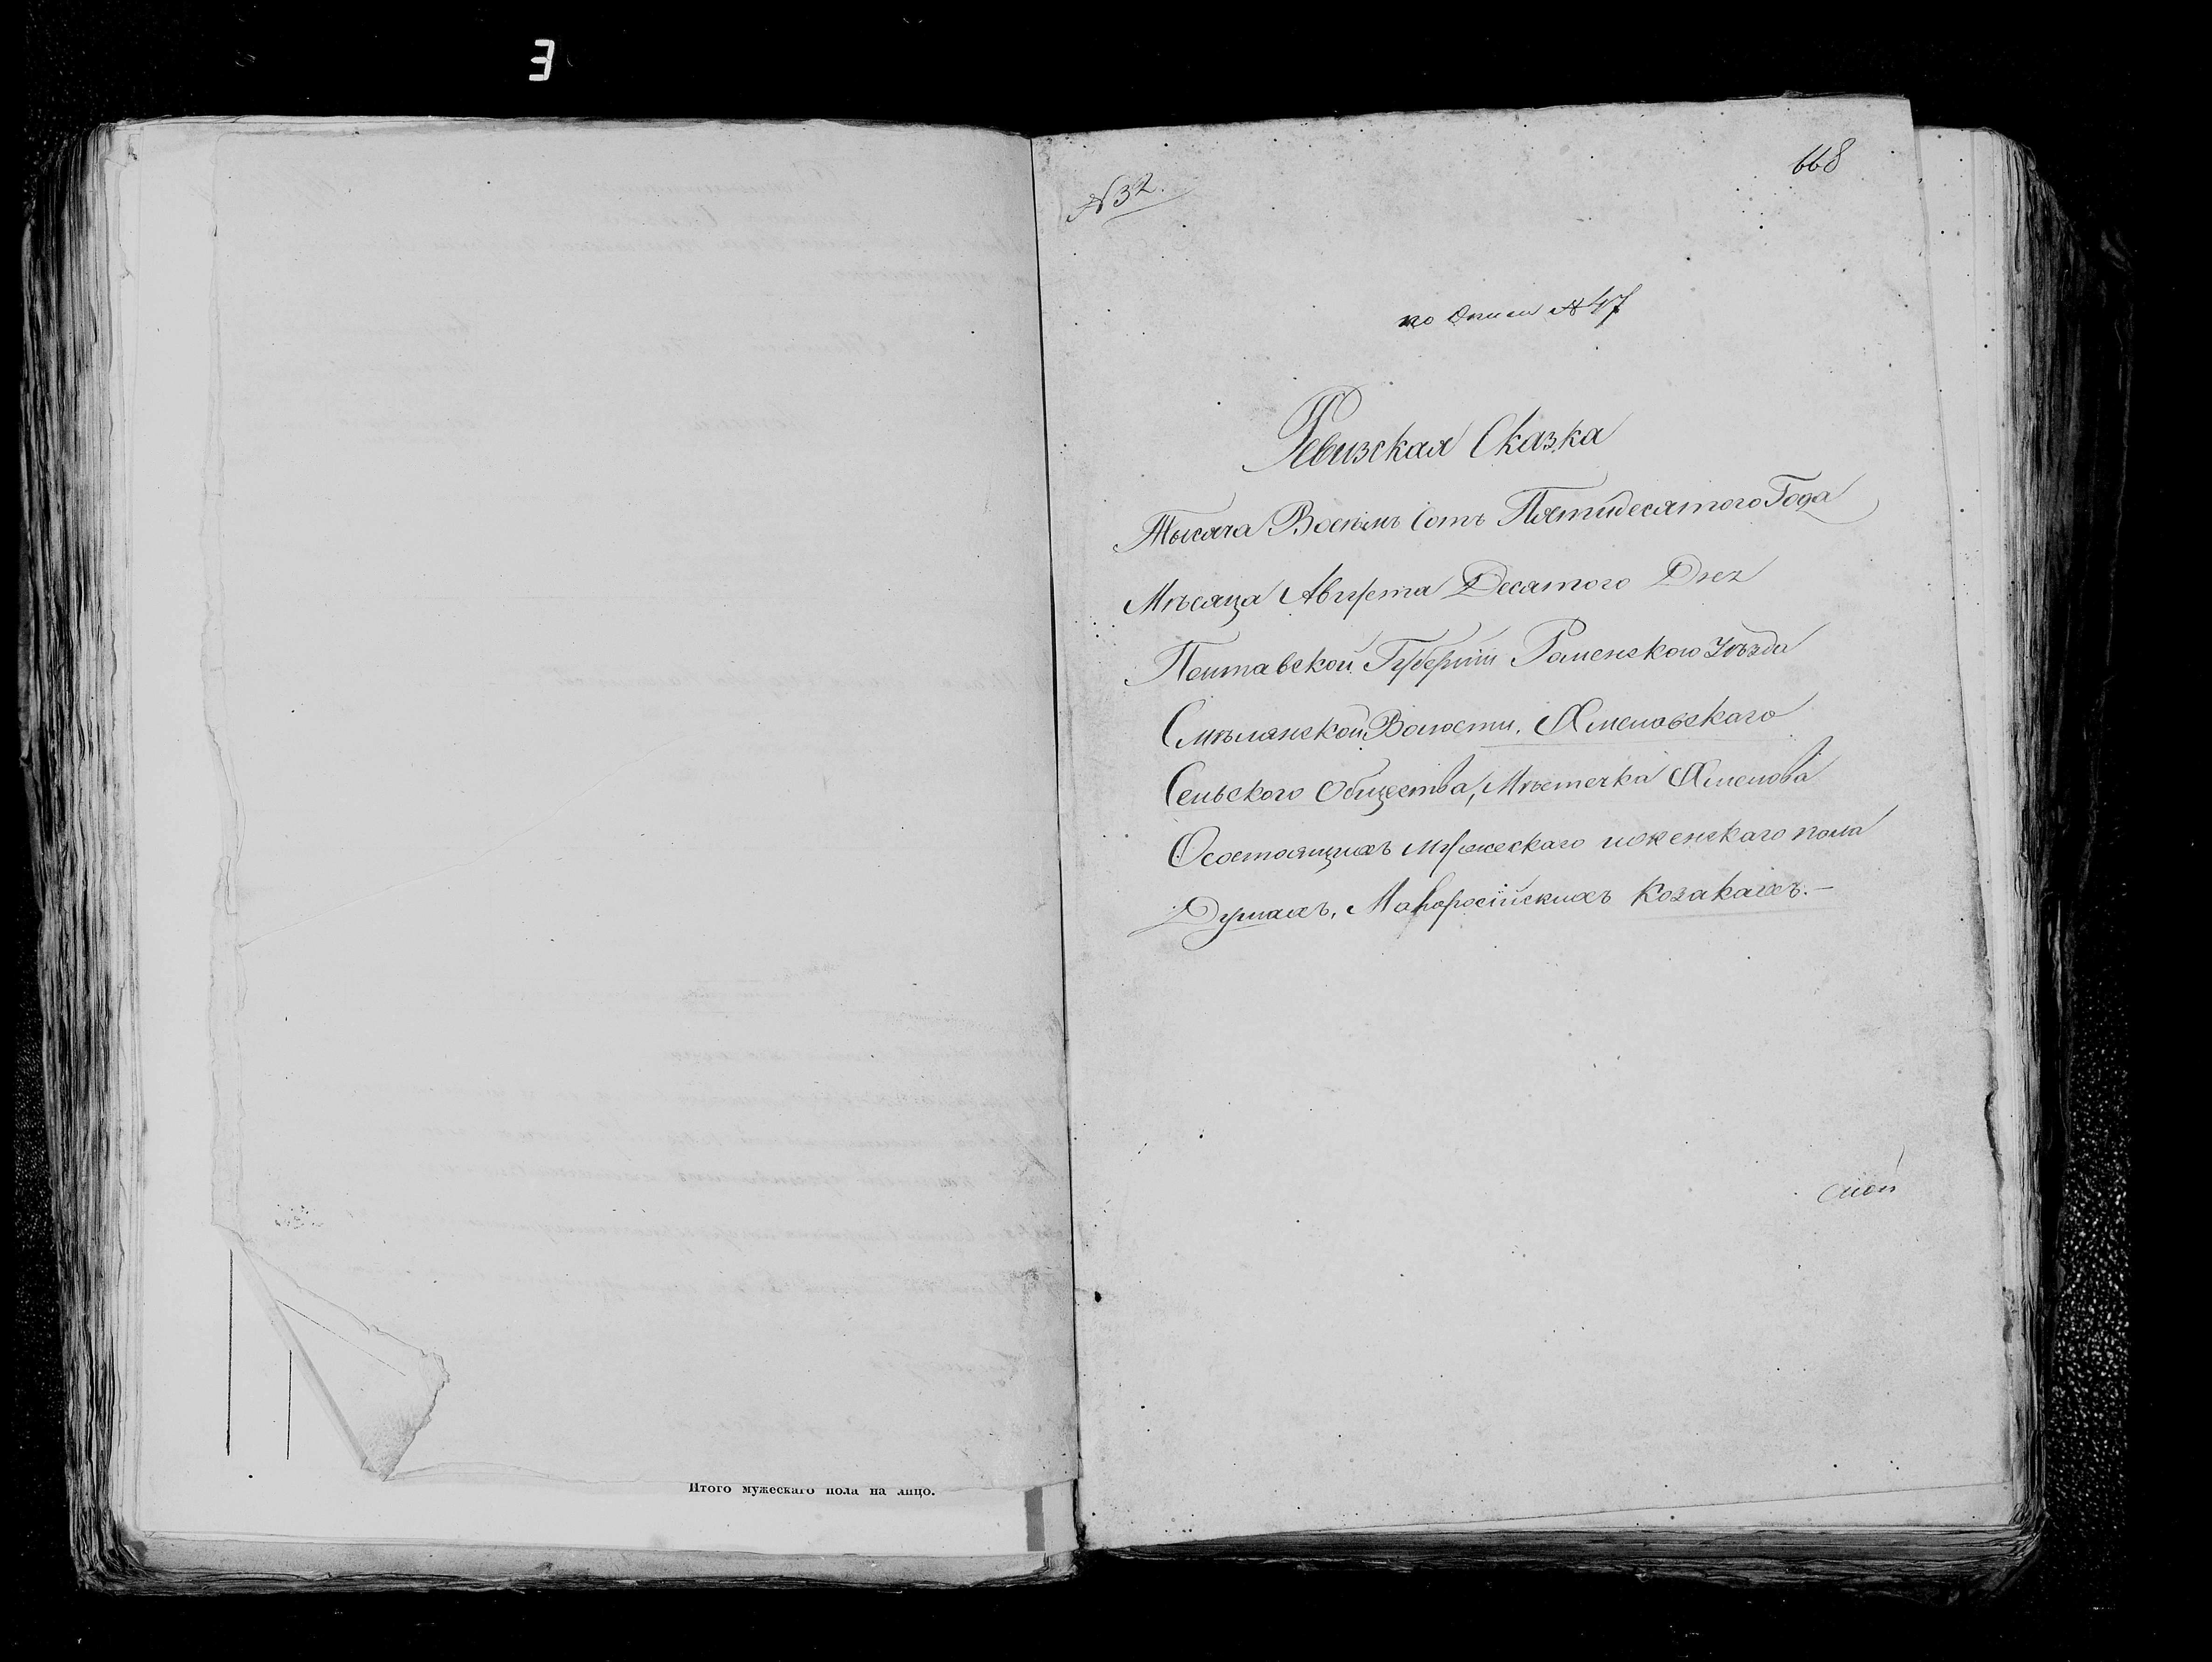 Итого мужескаго пола на лицо.
№32.
668
по Описи №47
Ревизская Сказка
Тысяча Восемь Сотъ Пятидесятого Года
Мѣсяца Августа Десятого Дня
Полтавской Губерніи Роменского Уѣзда
Смѣлянской Волости, Хмеловскаго
Сельского Общества, Мѣстечка Хмелова
О состоящихъ мужескаго и женскаго пола
Душахъ, Малоросійскихъ Козакахъ.—